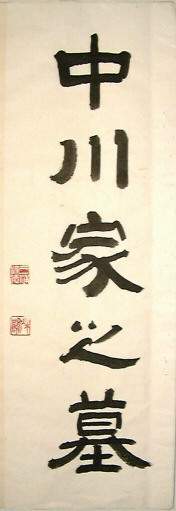 中川家之墓